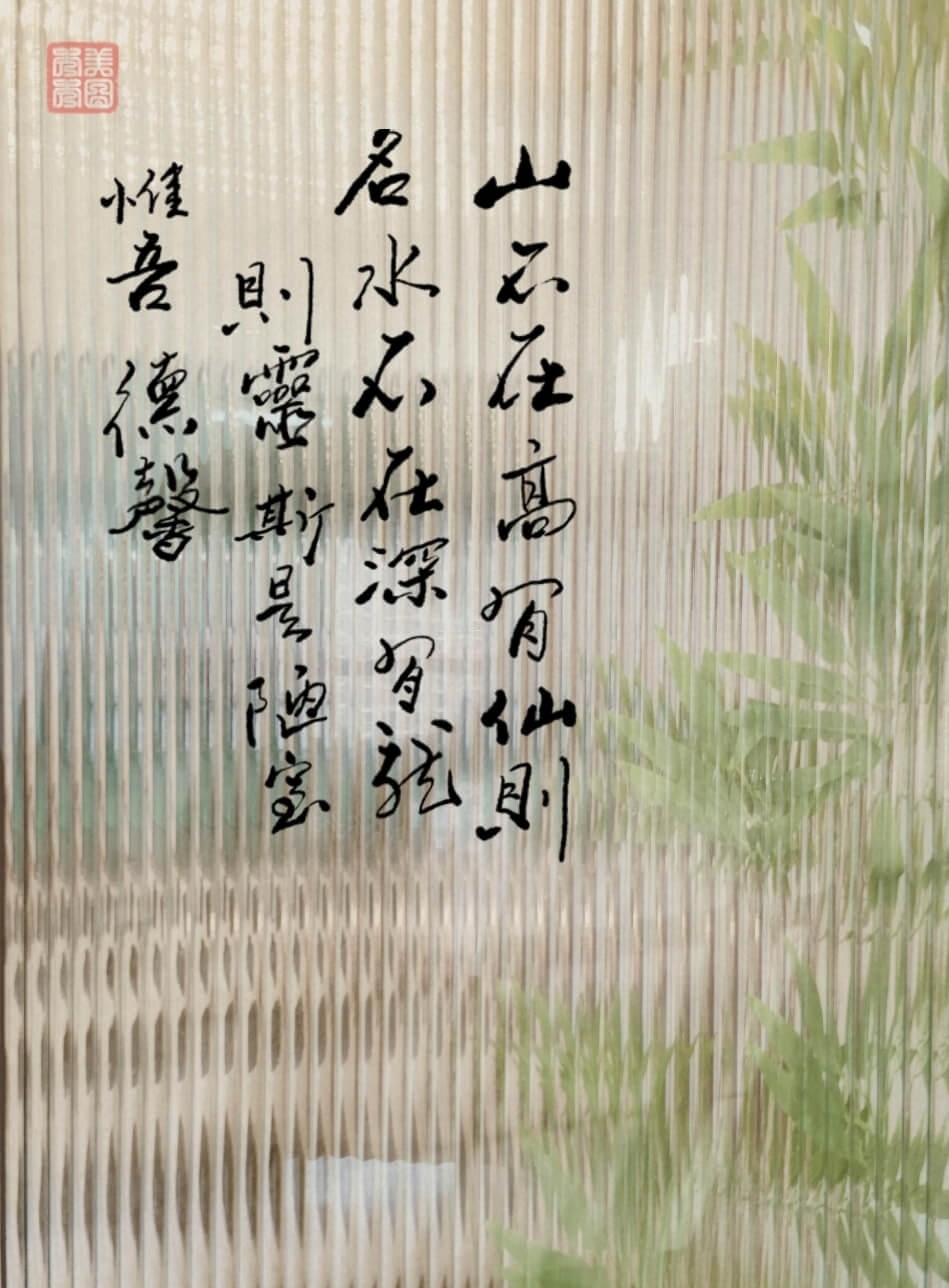 山不在高有仙則
名水不在深有龍
則靈斯是陋室
惟吾德馨
美图秀秀